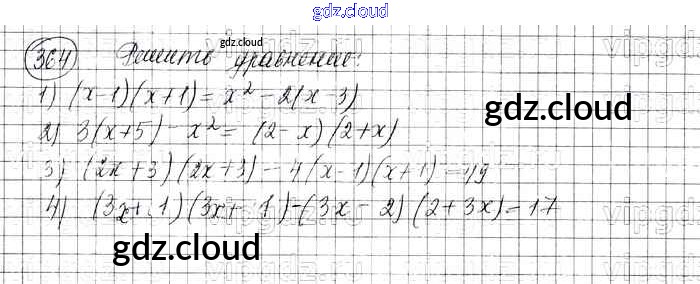 gdz.cloud
364 Решить уравнение:
gdz.cloud
1) (x-1)(x+1) = x² - 2(x-3)
gdz.cloud
2) 3(x+5) - x² = (2-x)(2+x)
3) (2x+3)(2x+3) - 4(x-1)(x+1) = 49
4) (3x+1)(3x+1) - (3x-2)(2+3x) = 17
gdz.cloud
gdz.cloud